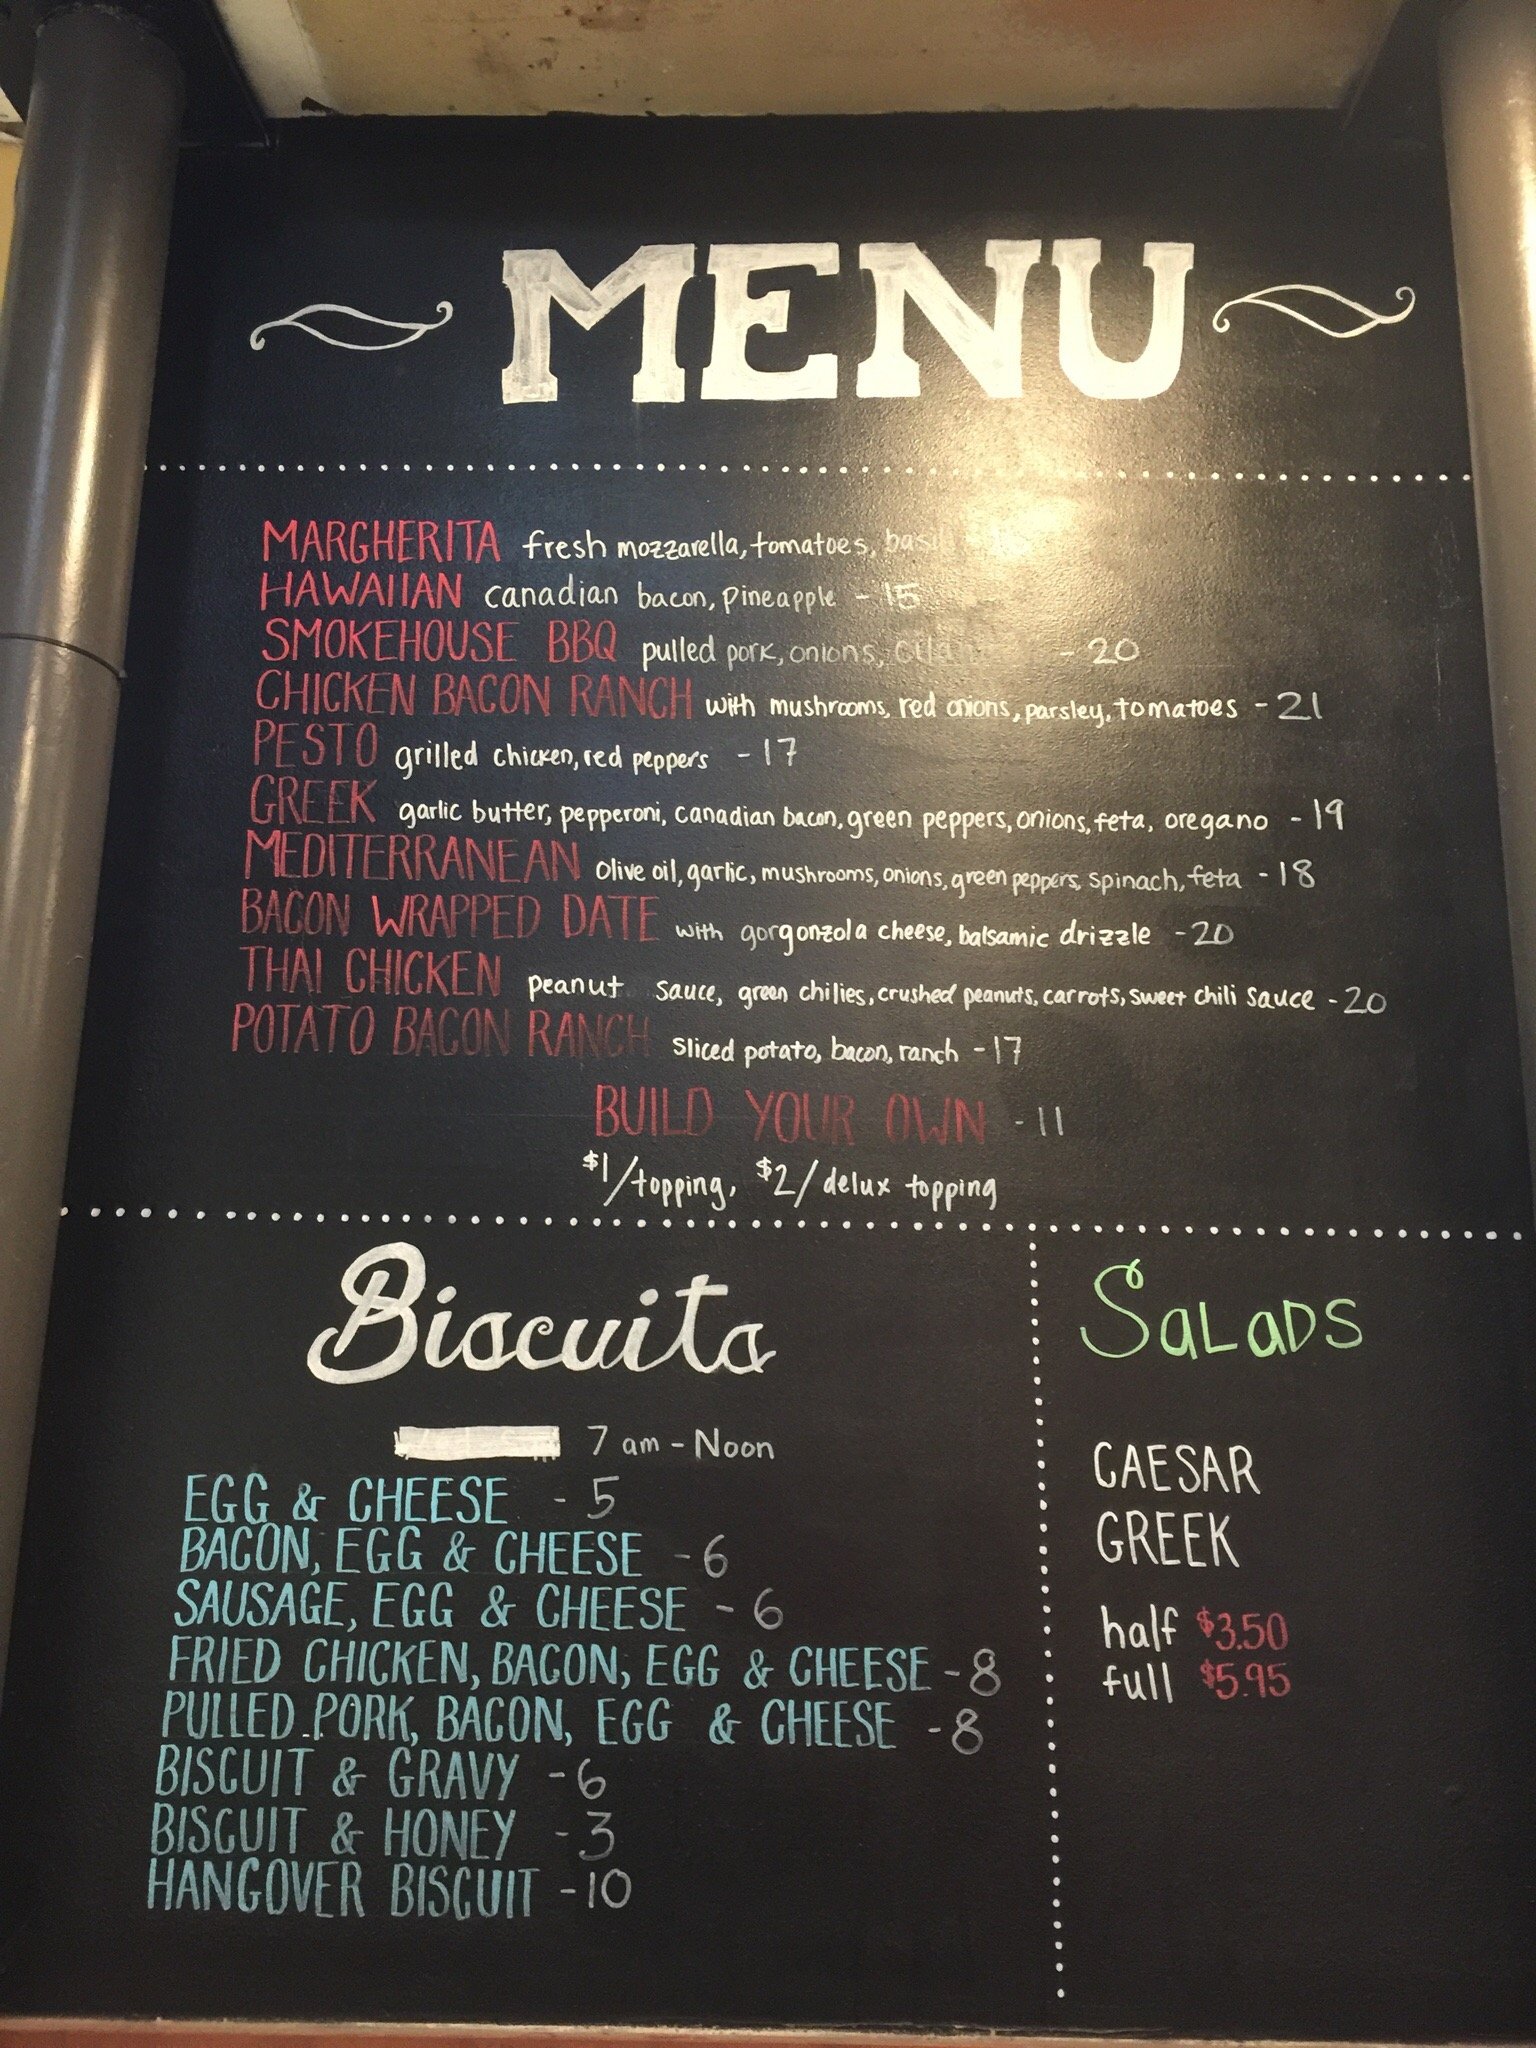 MENU
MARGHERITA fresh mozzarella, tomatoes, basil
HAWAIIAN canadian bacon, pineapple - 15
SMOKEHOUSE BBQ pulled pork, onions, - 20
CHICKEN BACON RANCH with mushrooms, red onions, parsley, tomatoes - 21
PESTO grilled chicken, red peppers - 17
GREEK garlic butter, pepperoni, canadian bacon, green peppers, onions, feta, oregano - 19
MEDITERRANEAN olive oil, garlic, mushrooms, onions, green peppers, spinach, feta - 18
BACON WRAPPED DATE with gorgonzola cheese, balsamic drizzle - 20
THAI CHICKEN peanut sauce, green chilies, crushed peanuts, carrots, sweet chili sauce - 20
POTATO BACON RANCH sliced potato, bacon, ranch - 17
BUILD YOUR OWN - 11
$1/topping, $2/delux topping
Biscuits
7 am - Noon
EGG & CHEESE - 5
BACON, EGG & CHEESE - 6
SAUSAGE, EGG & CHEESE - 6
FRIED CHICKEN, BACON, EGG & CHEESE - 8
PULLED PORK, BACON, EGG & CHEESE - 8
BISCUIT & GRAVY - 6
BISCUIT & HONEY - 3
HANGOVER BISCUIT - 10
SALADS
CAESAR
GREEK
half $3.50
full $5.95